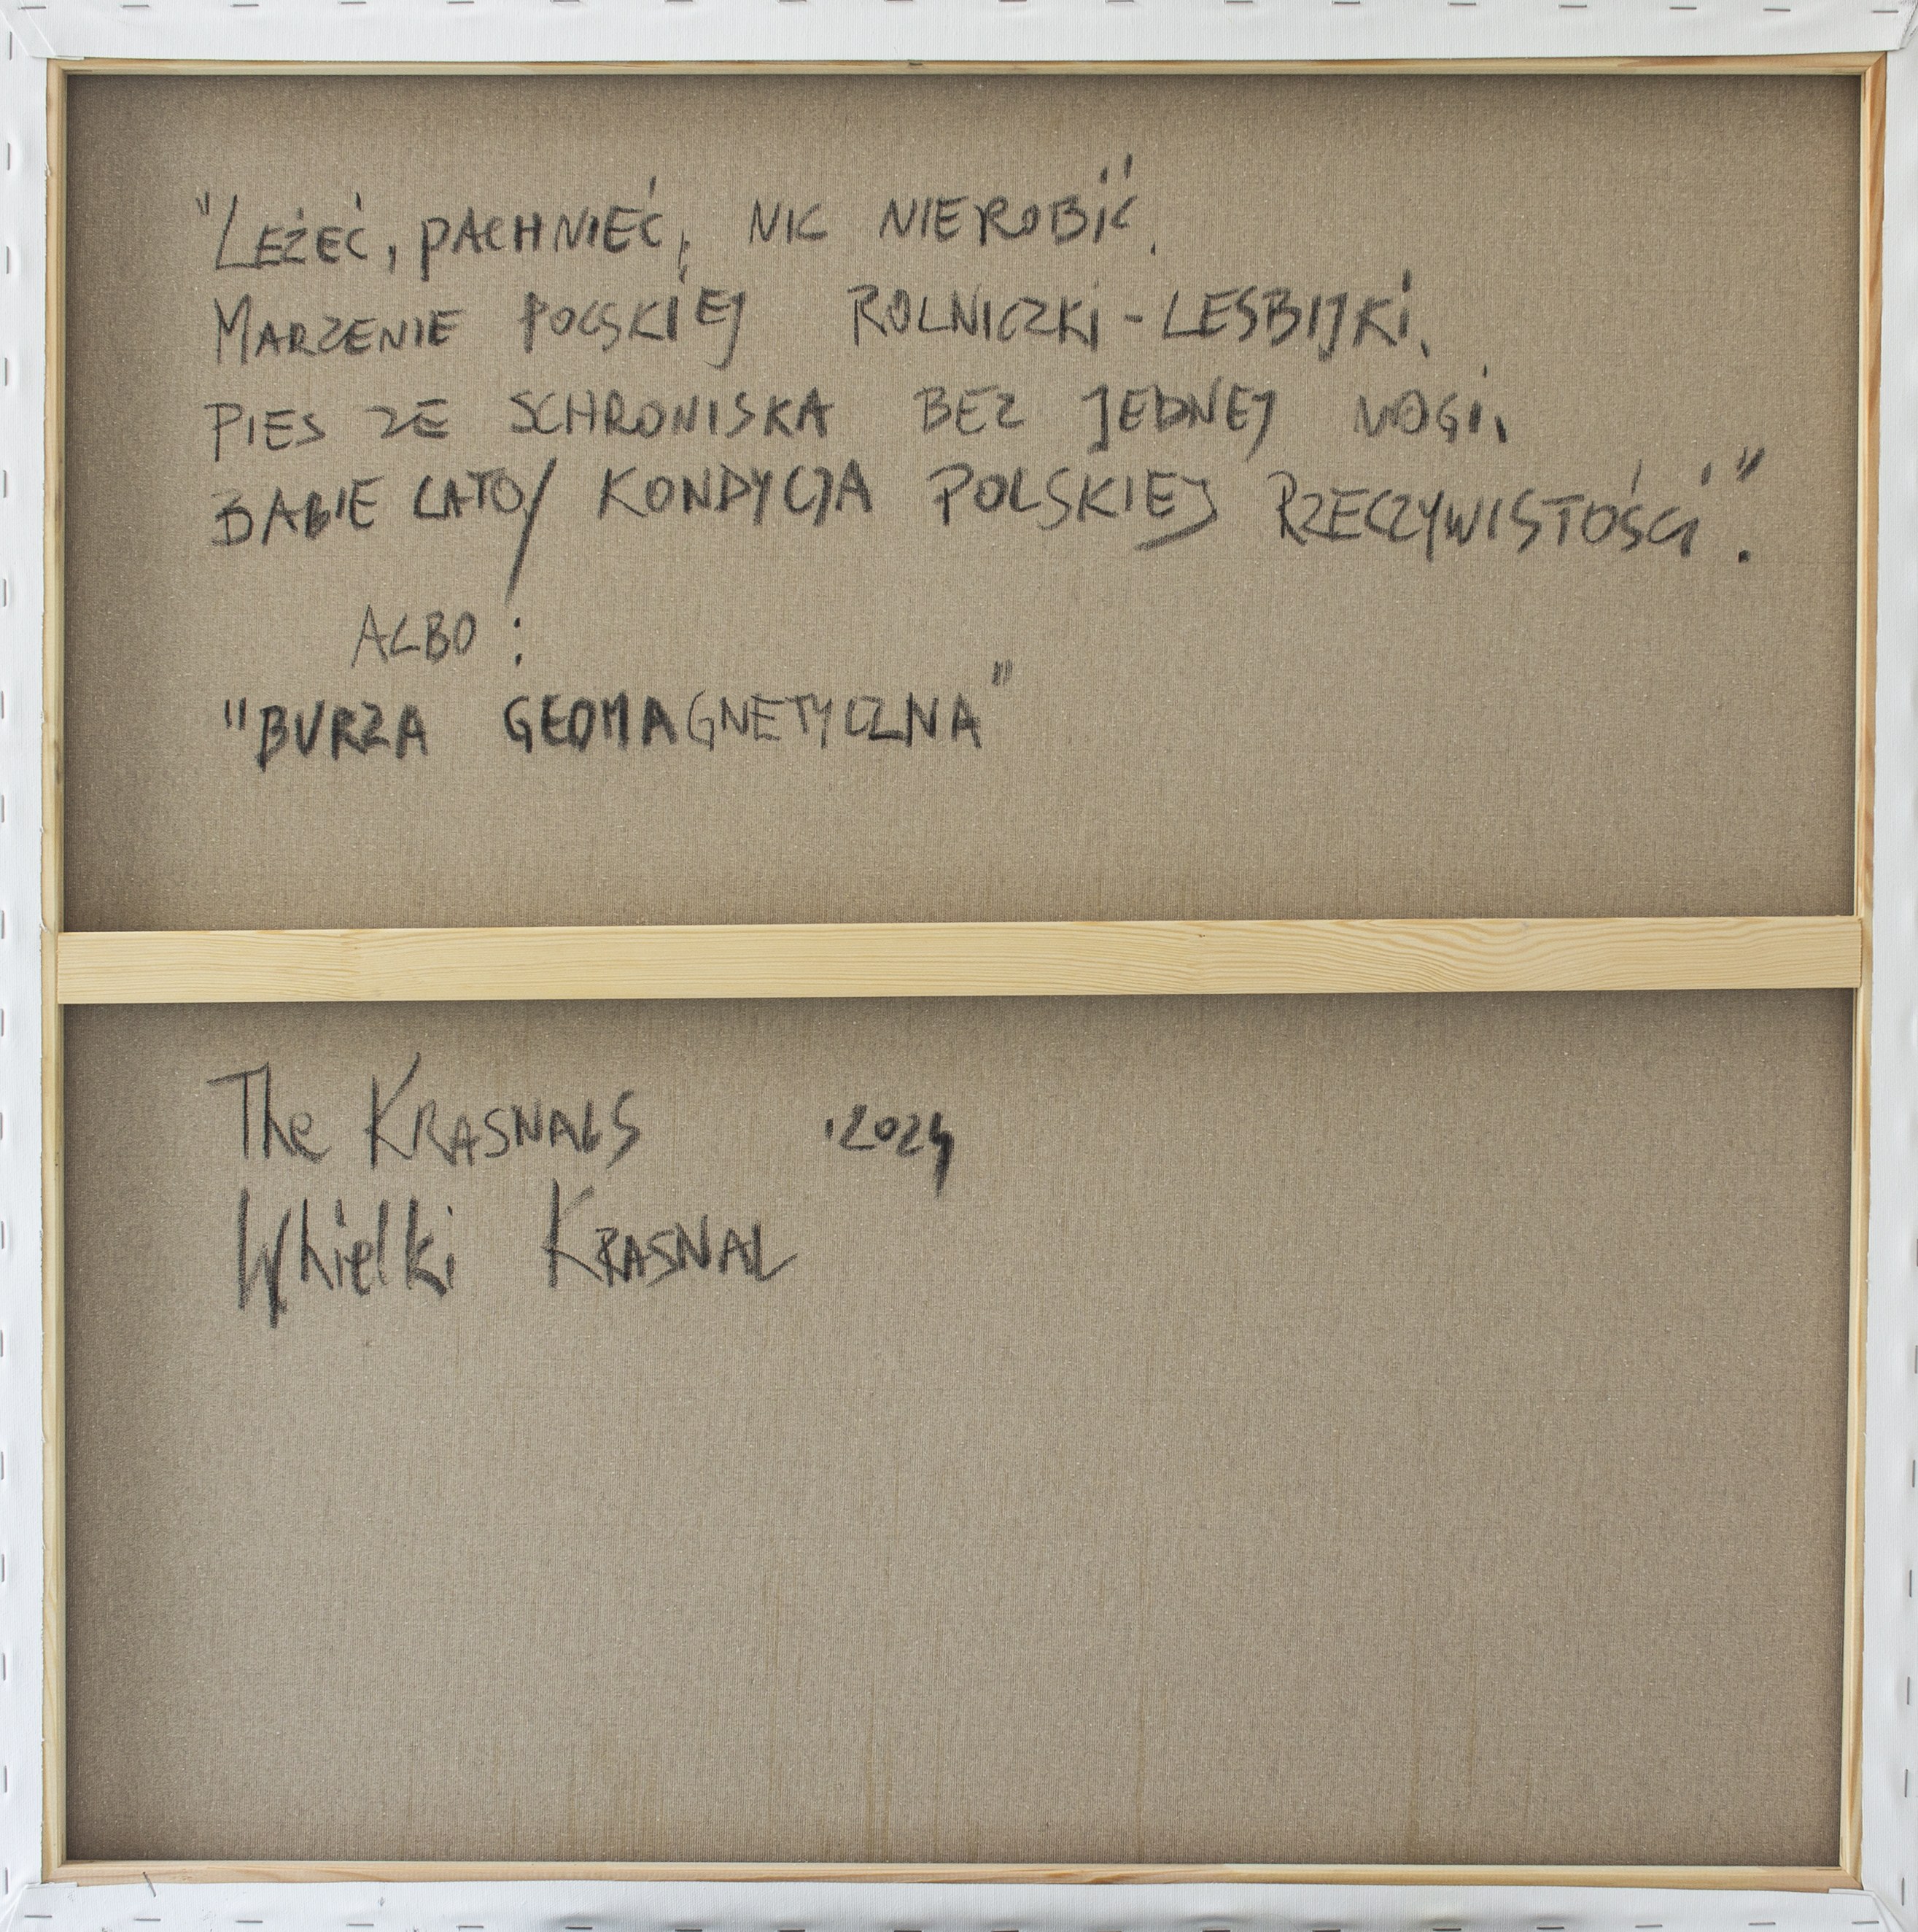 "LEŻEĆ, PACHNIEĆ, NIC NIEROBIĆ.
MARZENIE POLSKIEJ ROLNICZKI-LESBIJKI.
PIES ZE SCHRONISKA BEZ JEDNEJ NOGI.
BABIE LATO/ KONDYCJA POLSKIEJ RZECZYWISTOŚCI".
ALBO :
"BURZA GEOMAGNETYCZNA"
The KRASNALS 2024
Whielki KRASNAL